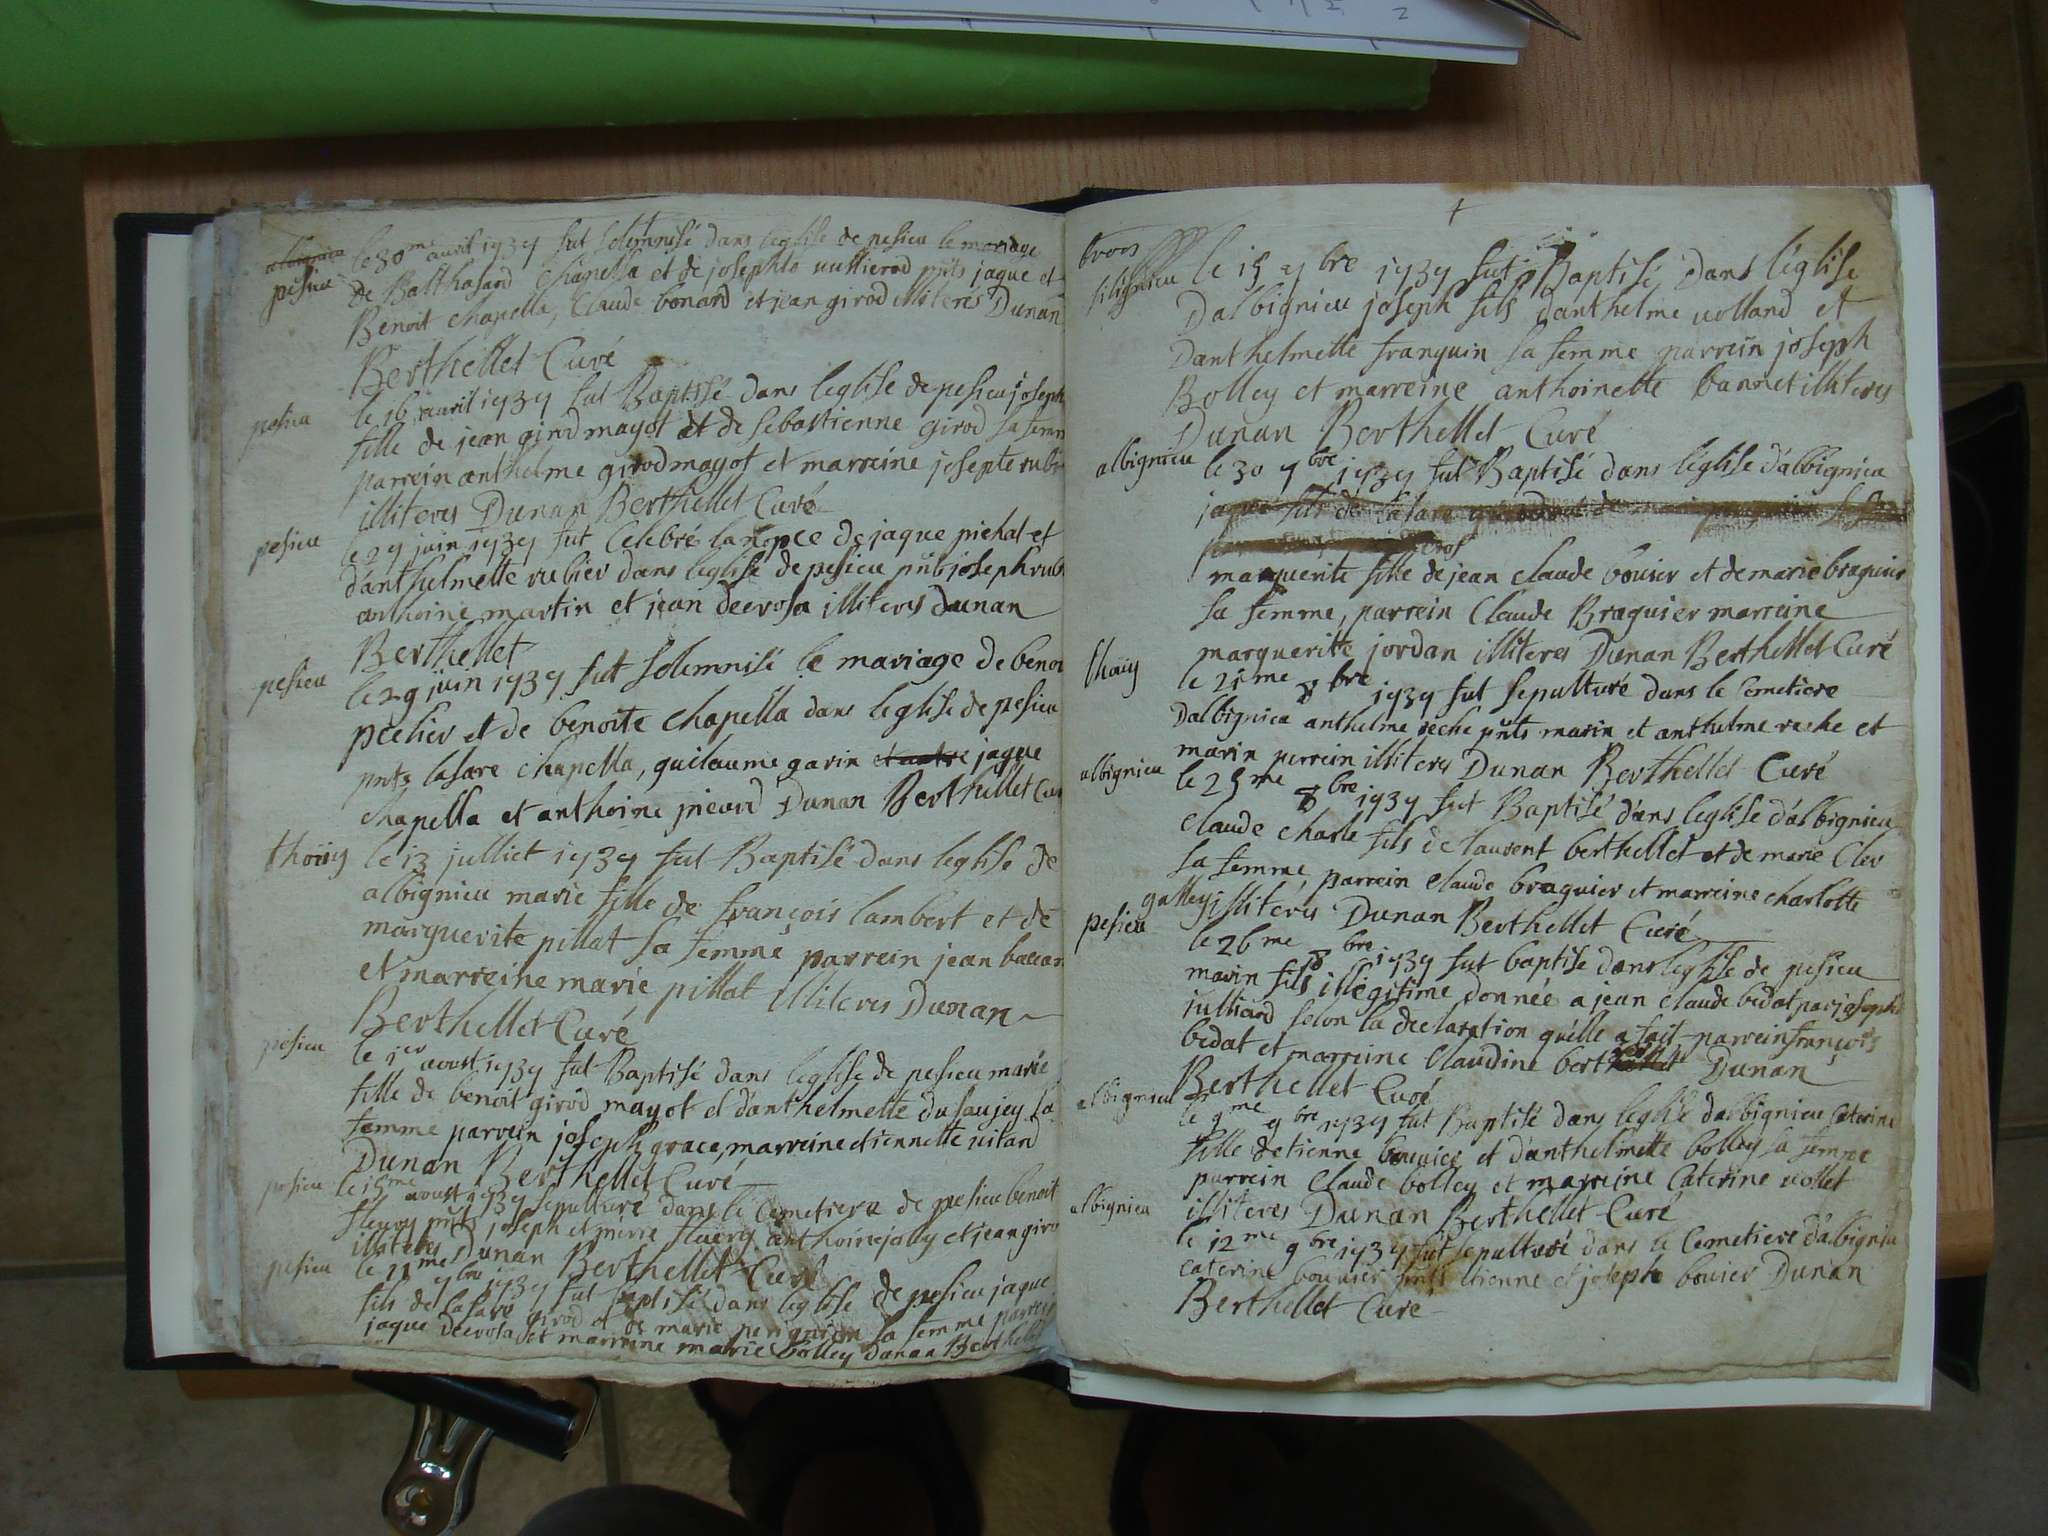 albignieu
pesieu
le 30me avril 1737 fut solemnisé dans leglise de pesieu le mariage
de Balthasard Chapella et de josephte vullierod pnts jaque et
Benoit chapella, Claude bonard et jean girod illiteres Dunan
Berthellet Curé
pesieu
le 16 avril 1737 fut Baptisé dans leglise de pesieu joseph
fille de jean girod mayot et de sebastienne girod sa femm
parrein anthelme girod mayot et marreine josepte rubi
illiteres Dunan Berthellet Curé
pesieu
le 27 juin 1737 fut Celebré la nopce de jaque pichat et
d'anthelmette rubier dans leglise de pesieu pnts joseph rub
anthoine martin et jean decrosa illiteres dunan
Berthellet
pesieu
le 29 juin 1737 fut solemnisé le mariage de benoi
pcelier et de benoite chapella dans leglise de pesieu
pnts lasare chapella, guilaume gavin et autre jaque
chapella et anthoine Dunan Berthellet Cur
thoüy
le 13 julliet 1737 fut Baptisé dans leglise de
albignieu marie fille de françois lambert et de
marguerite pillat sa femme, parrein jean
et marreine marie pillat illiteres Dunan
Berthellet Curé
pesieu
le 1er aoust 1737 fut Baptisé dans leglise de pesieu marie
fille de benoit girod mayot et danthelmette dusaujey sa
femme parrein joseph grace, marreine etiennette vitand
Dunan Berthellet Curé
pesieu
le 15me aoust 1737 sepulturé dans le Cemetiere de pesieu benoit
fleury pnts joseph et pierre fleury anthoine jolly et jean giro
illiteres Dunan Berthellet Curé
pesieu
le 21me 7bre 1737 fut Baptisé dans leglise de pesieu jaque
fils de lasare girod et de marie perignion sa femme parrein
jaque decrosa et marreine marie bolley dunan Berthellet
+
trois
silignieu
le 15 7bre 1737 fut Baptisé dans l'église
Dalbignieu joseph fils danthelme volland et
Danthelmette franquin sa femme parrein joseph
Bolley et marreine anthoinette bannet illiteres
Dunan Berthellet Curé
albignieu
le 30 7bre 1737 fut Baptisé dans leglise d'albignieu
jaque fils de lasare girod et de marie
marguerite fille de jean claude bovier et de marie braguier
sa femme, parrein Claude Braguier marreine
marguerite jordan illiteres Dunan Berthellet Curé
thoüy
le 21me 8bre 1737 fut sepulturé dans le Cemetiere
Dalbignieu anthelme reche pnts marin et anthelme rache et
marin perrein illiteres Dunan Berthellet Curé
albignieu
le 25me 8bre 1737 fut Baptisé dans leglise d'albignieu
Claude charle fils de laurent berthellet et de marie Cler
sa femme, parrein Claude braguier et marreine charlotte
galley illiteres Dunan Berthellet Curé
pesieu
le 26me 8bre 1737 fut baptisé dans leglise de pesieu
marin fils illegitime donnée a jean claude bidat par josephte
julliard selon la declaration qu'elle a fait parrein françois
bidat et marreine Claudine Dunan
Berthellet Curé
albignieu
le 7me 9bre 1737 fut Baptisé dans leglise dalbignieu Caterine
fille detienne bouvier et d'anthelmette bolley sa femme
parrein Claude bolley et marreine Caterine viollet
illiteres Dunan Berthellet Curé
albignieu
le 12me 9bre 1737 fut sepulturé dans le Cemetiere d'albignieu
caterine bouvier pnts etienne et josephe bovier Dunan
Berthellet Curé